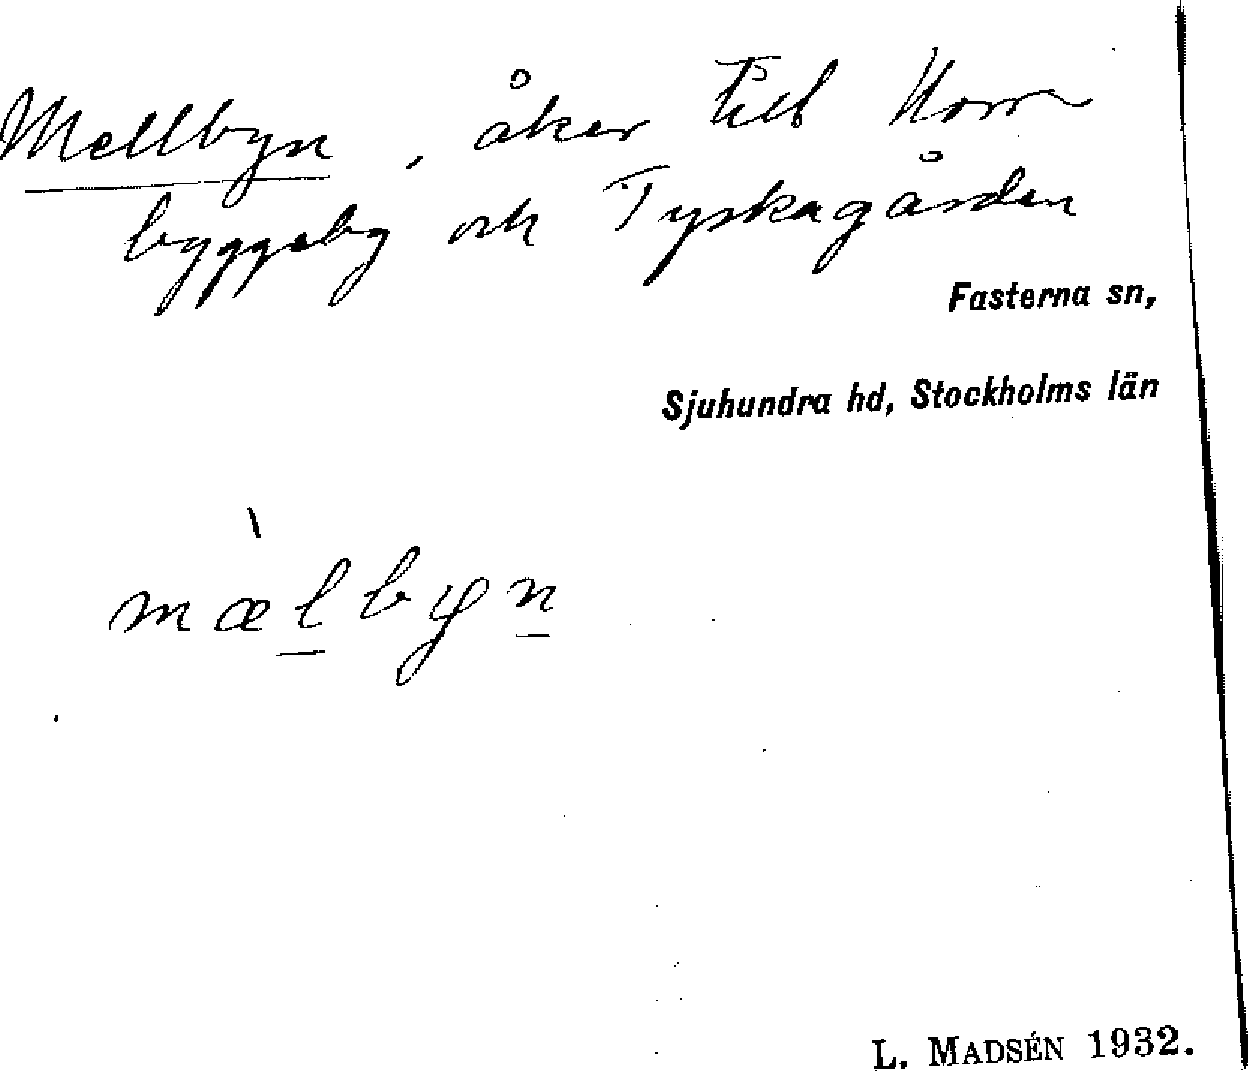 Mellbyn, åker till Norr
byggeby och Tyskagården
Fasterna sn,
Sjuhundra hd, Stockholms län
mæ̀lbyn
L. MADSÉN 1932.